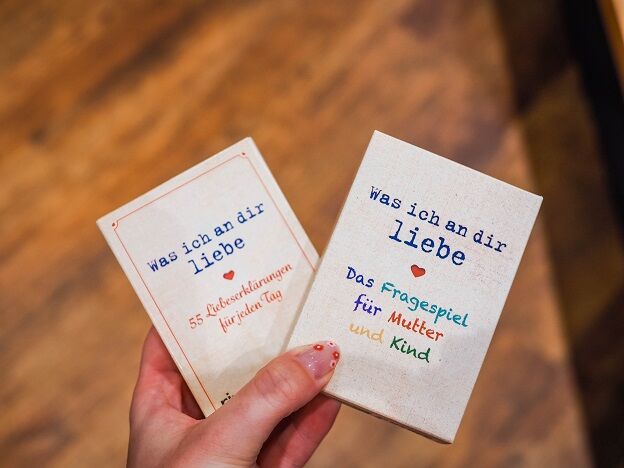 Was ich an dir
liebe
55 Liebeserklärungen
für jeden Tag
Was ich an dir
liebe
Das Fragespiel
für Mutter
und Kind